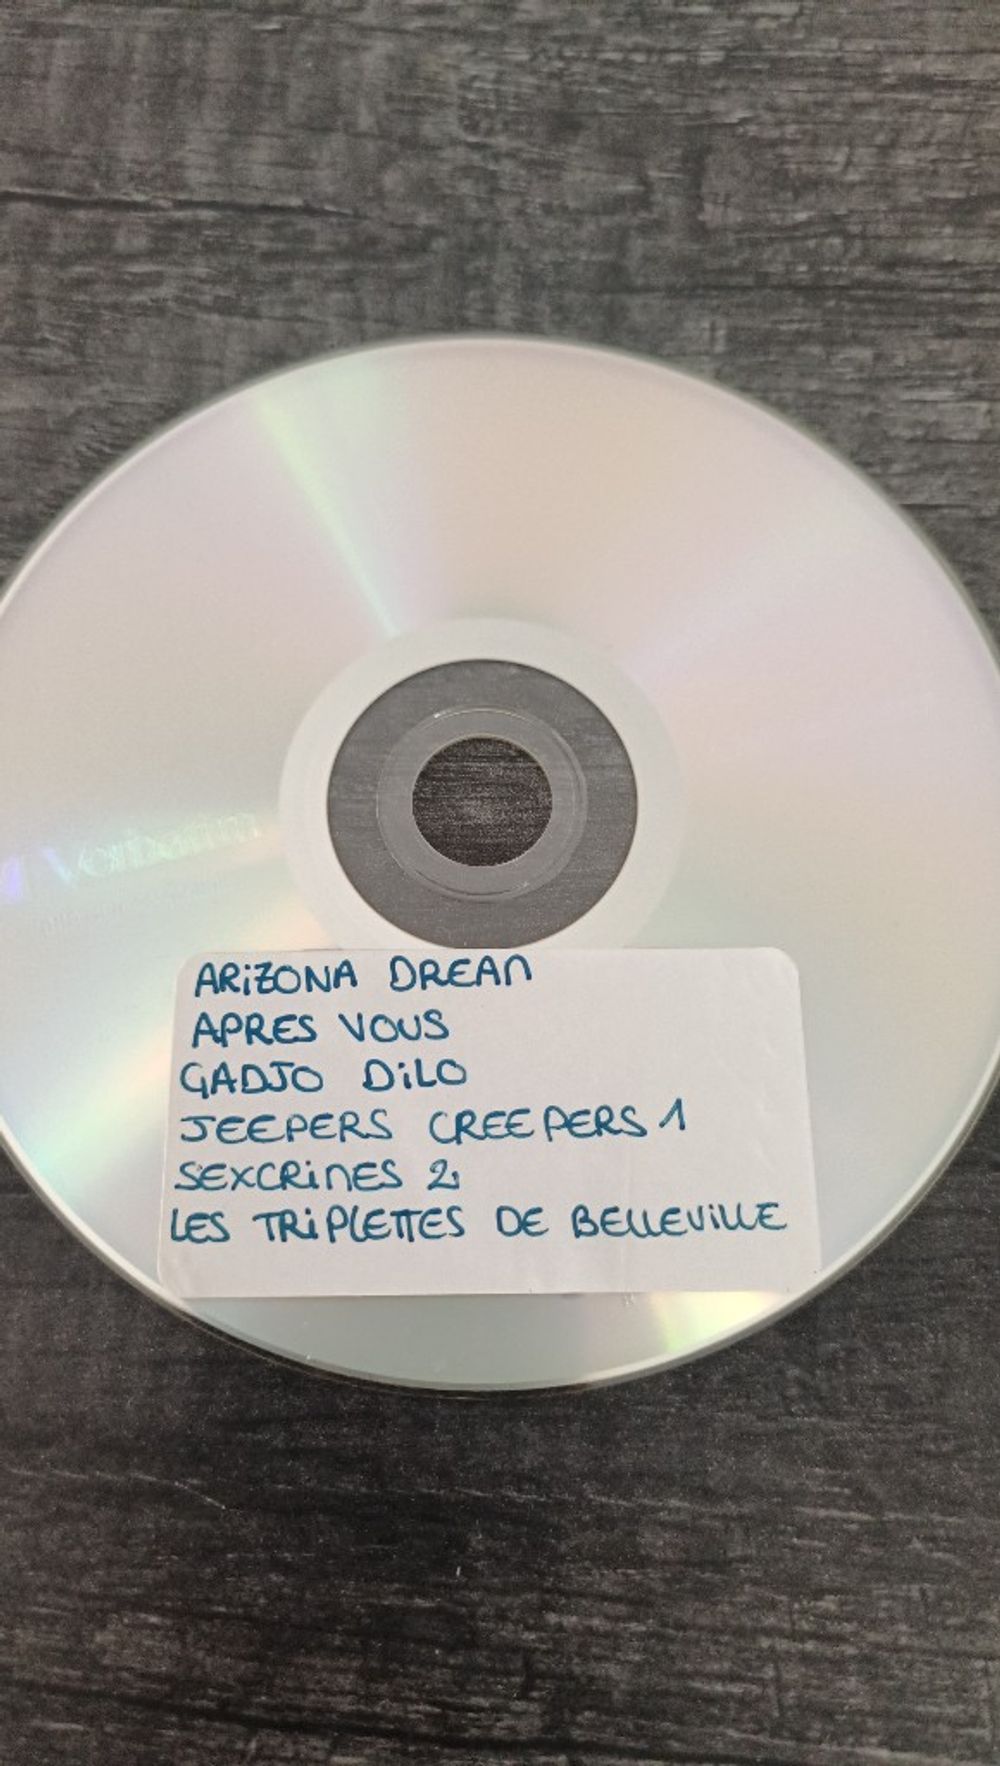 Verbatim
ARIZONA DREAM
APRES VOUS
GADJO DILO
JEEPERS CREEPERS 1
SEXCRIMES 2
LES TRIPLETTES DE BELLEVILLE